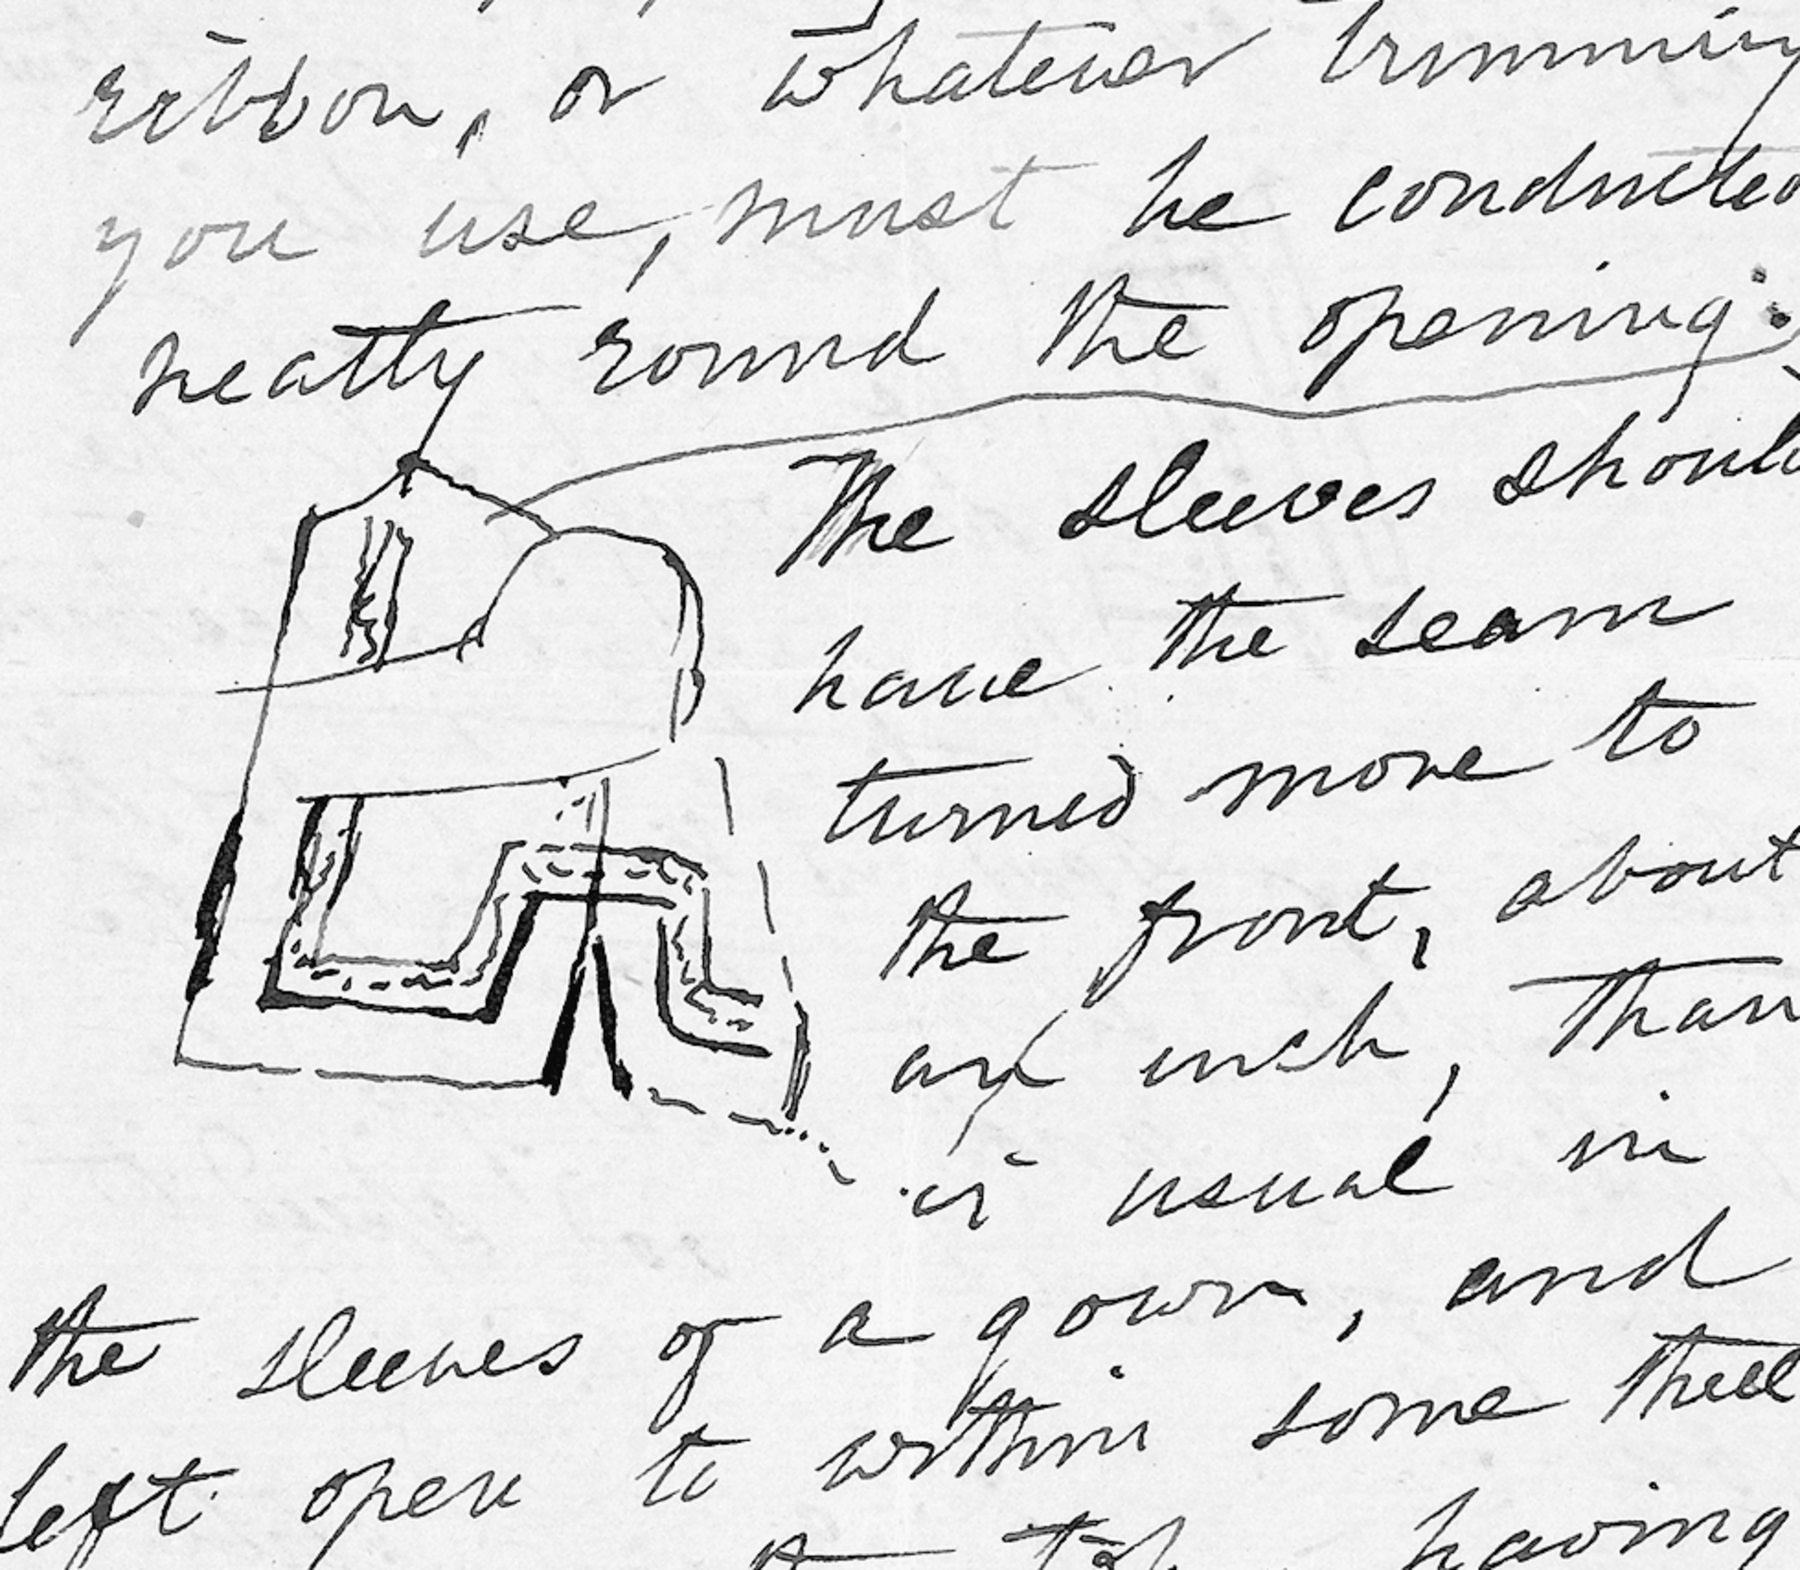 ribbon, or whatever trimming
you use, must be conducted
neatly round the opening.
The sleeves should
have the seam
turned more to
the front, about
an inch, than
is usual in
the sleeves of a gown, and
left open to within some three
having